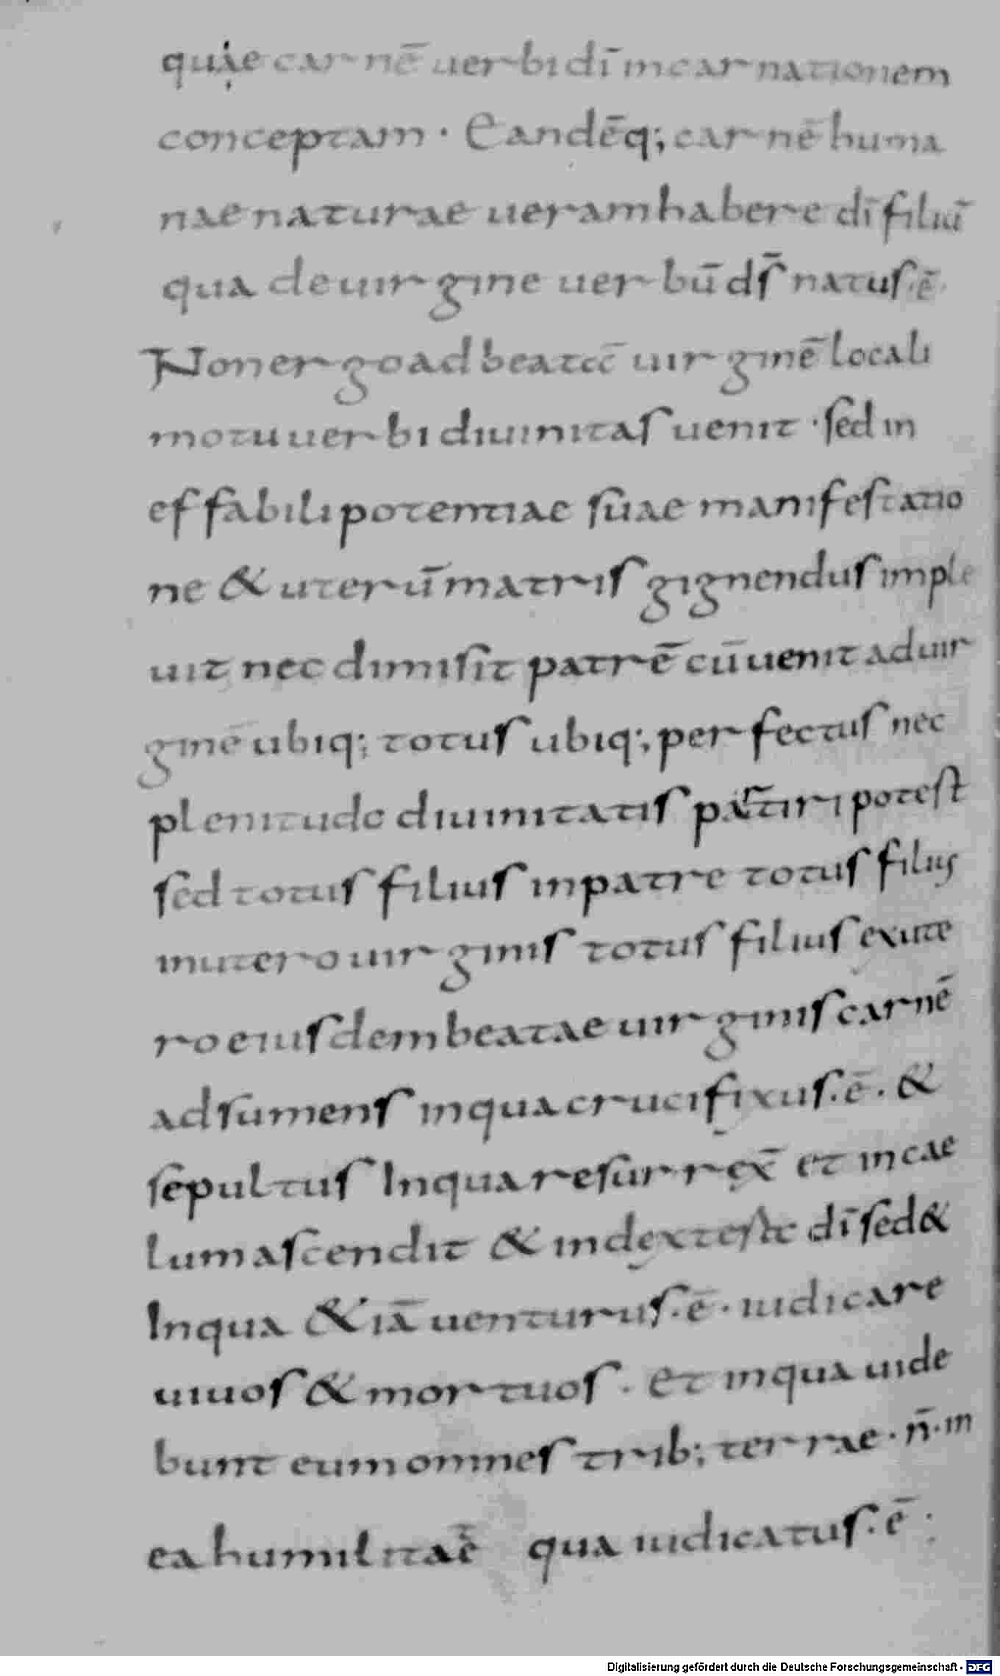 quae carnē uerbi dī incarnationem
conceptam · Eandēq; carnē huma
nae naturae ueram habere dī filiū
qua de uirgine uerbū dS̄ natus·ē·
Non ergo ad beatā uirginē locali
motu uerbi diuinitas uenit · sed in
effabili potentiae suae manifestatio
ne & uterū matris gignendus imple
uit nec dimisit patrē cū uenit ad uir
ginē ubiq; totus ubiq; perfectus nec
plenitudo diuinitatis partiri potest
sed totus filius in patre totus filius
in utero uirginis totus filius ex ute
ro eiusdem beatae uirginis carnē
adsumens in qua crucifixus·ē· &
sepultus In qua resurrex̄ et in cae
lum ascendit & in dextera dī sed&
In qua & iā uenturus·ē· iudicare
uiuos & mortuos · Et in qua uide
bunt eum omnes trib; terrae · n̄· in
ea humilitatē qua iudicatus·ē :
Digitalisierung gefördert durch die Deutsche Forschungsgemeinschaft - DFG